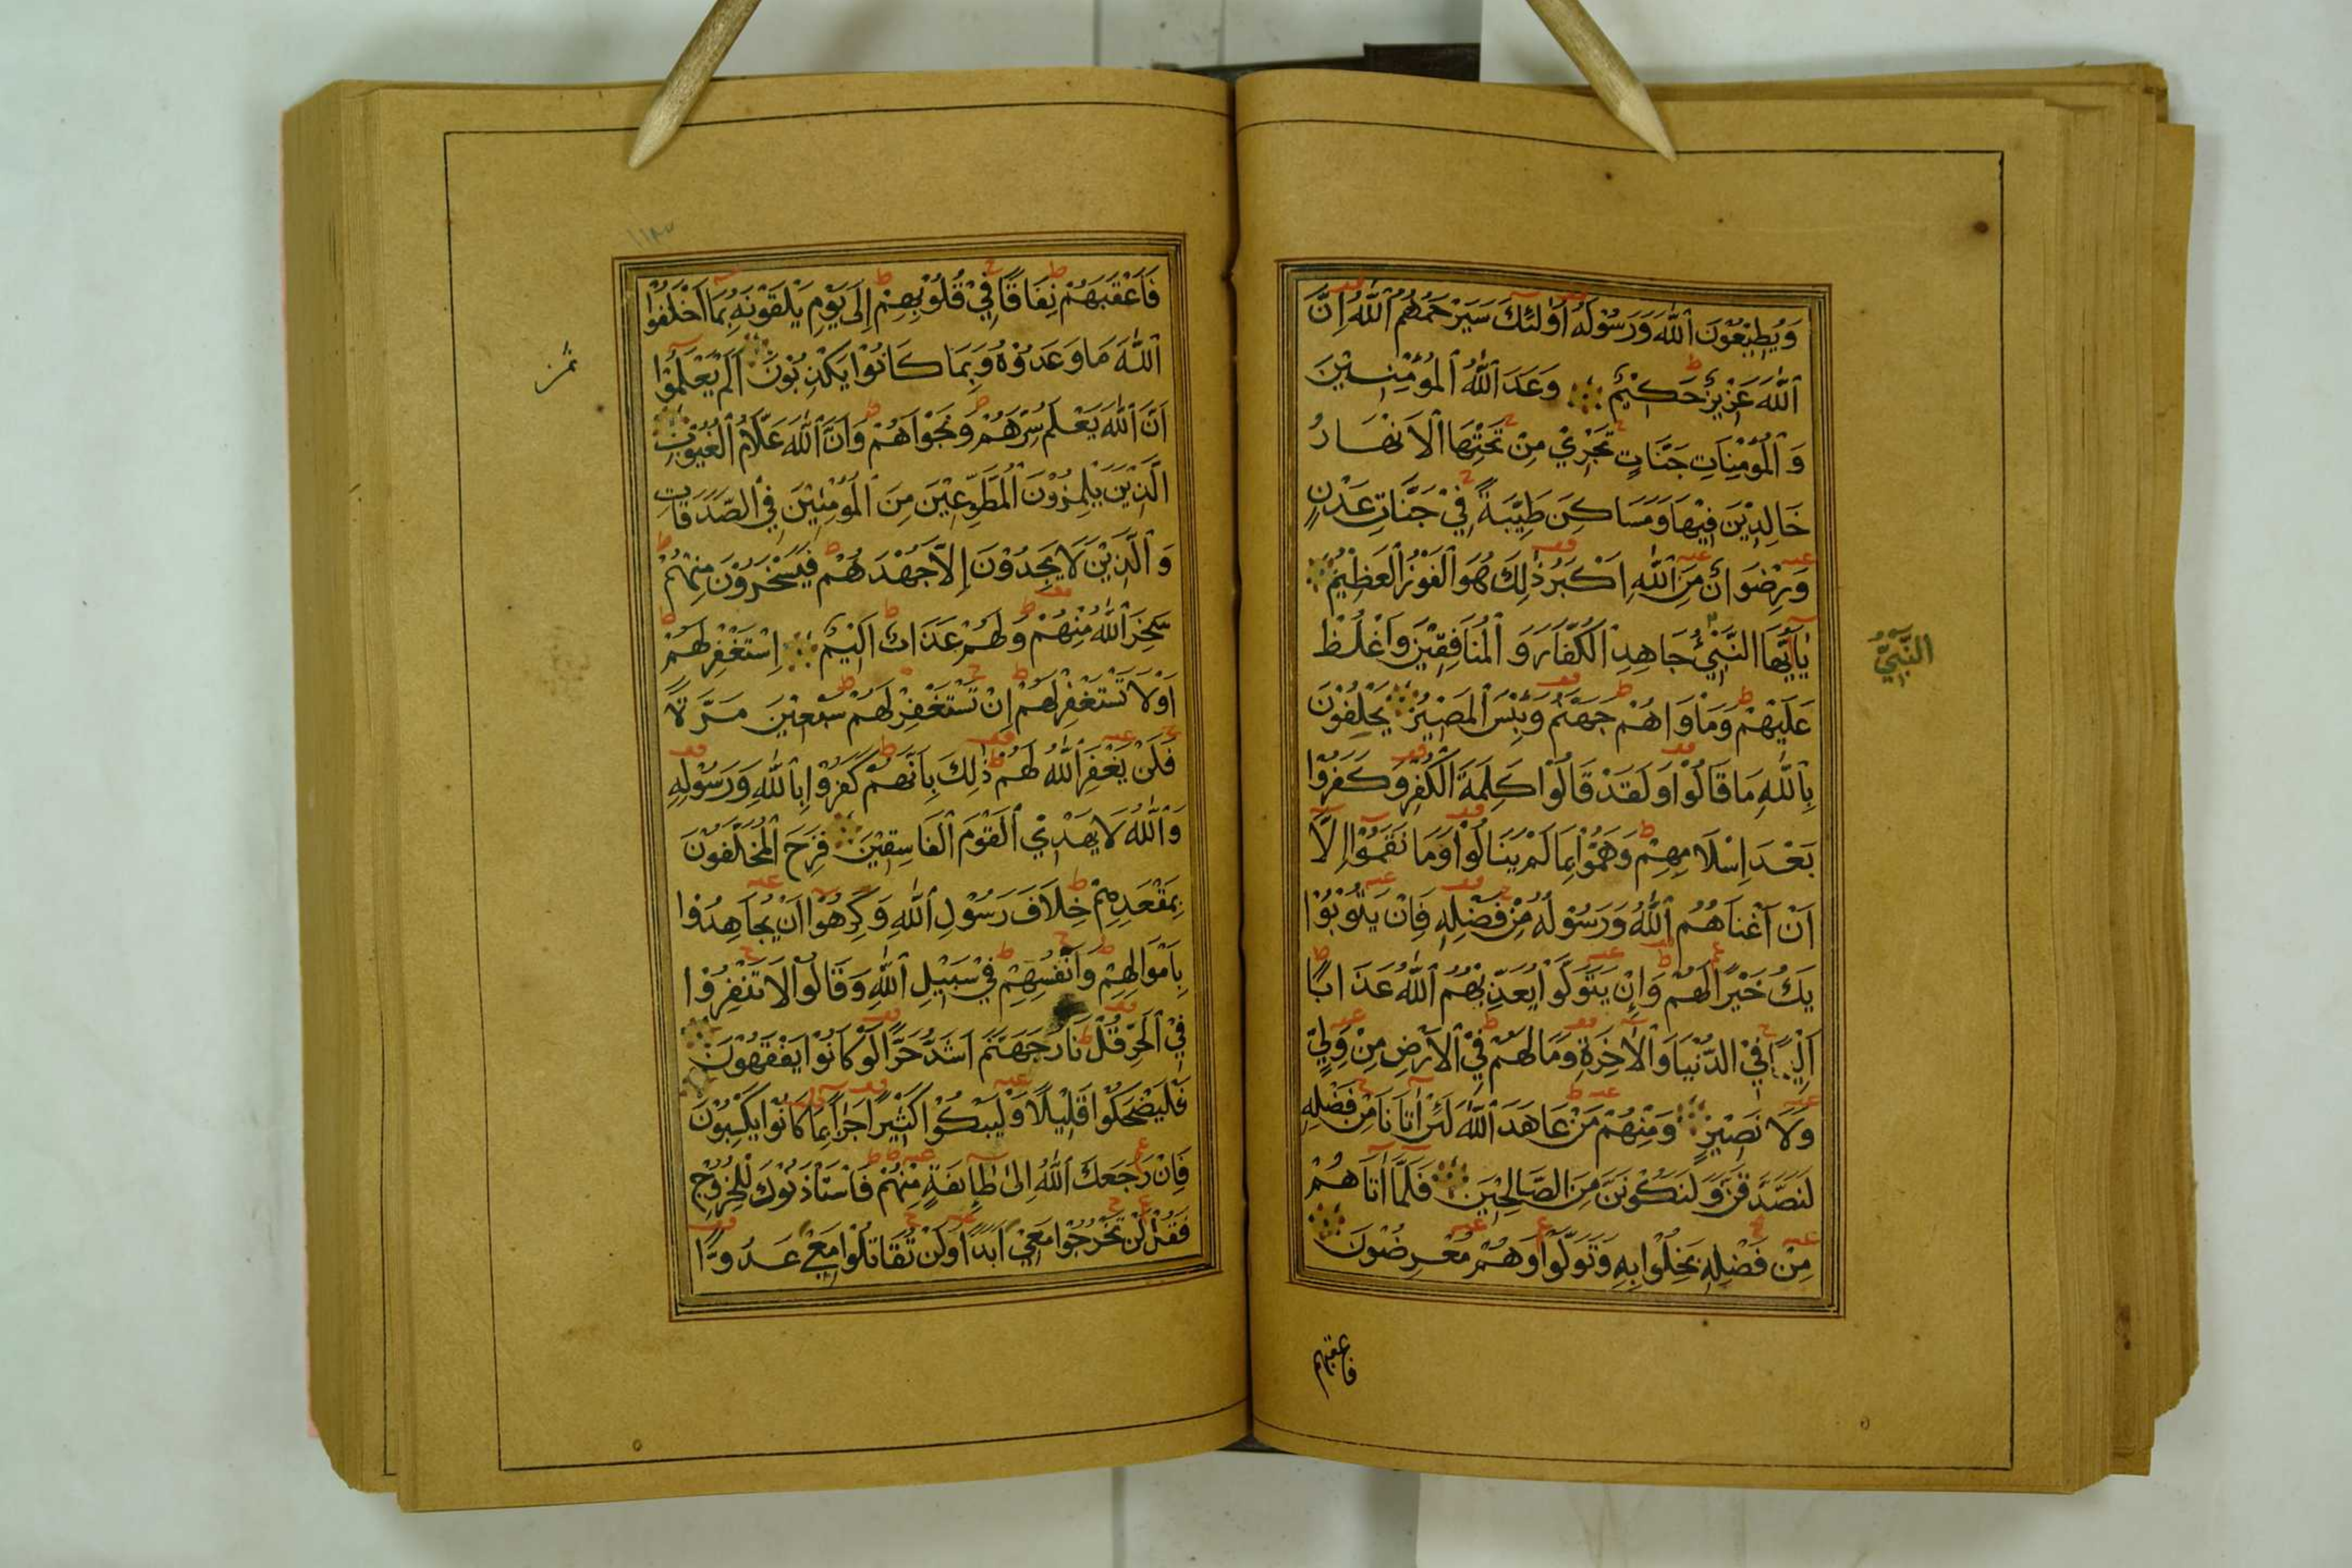 وَيُطِيْعُوْنَ ٱللّٰهَ وَرَسُوْلَهُ اُولٰئِكَ سَيَرْحَمُهُمُ ٱللّٰهُ اِنَّ
ٱللّٰهَ عَزِيْزٌ حَكِيْمٌ وَعَدَ ٱللّٰهُ ٱلْمُؤْمِنِيْنَ
وَٱلْمُؤْمِنَاتِ جَنَّاتٍ تَجْرِيْ مِنْ تَحْتِهَا ٱلْاَنْهَارُ
خَالِدِيْنَ فِيْهَا وَمَسَاكِنَ طَيِّبَةً فِيْ جَنَّاتِ عَدْنٍ
وَرِضْوَانٌ مِنَ ٱللّٰهِ اَكْبَرُ ذٰلِكَ هُوَ ٱلْفَوْزُ ٱلْعَظِيْمُ
يَٓا اَيُّهَا النَّبِيُّ جَاهِدِ ٱلْكُفَّارَ وَٱلْمُنَافِقِيْنَ وَاغْلُظْ
النَّبِيُّ
عَلَيْهِمْ وَمَاْوَاهُمْ جَهَنَّمُ وَبِئْسَ ٱلْمَصِيْرُ يَحْلِفُوْنَ
بِٱللّٰهِ مَا قَالُوْا وَلَقَدْ قَالُوْا كَلِمَةَ ٱلْكُفْرِ وَكَفَرُوْا
بَعْدَ اِسْلَامِهِمْ وَهَمُّوْا بِمَا لَمْ يَنَالُوْا وَمَا نَقَمُوْا اِلَّٓا
اَنْ اَغْنَاهُمُ ٱللّٰهُ وَرَسُوْلُهُ مِنْ فَضْلِهِ فَاِنْ يَتُوْبُوْا
يَكُ خَيْرًا لَهُمْ وَاِنْ يَتَوَلَّوْا يُعَذِّبْهُمُ ٱللّٰهُ عَذَابًا
اَلِيْمًا فِيْ الدُّنْيَا وَٱلْاٰخِرَةِ وَمَا لَهُمْ فِيْ ٱلْاَرْضِ مِنْ وَلِيٍّ
وَلَا نَصِيْرٍ وَمِنْهُمْ مَنْ عَاهَدَ ٱللّٰهَ لَئِنْ اٰتَانَا مِنْ فَضْلِهِ
لَنَصَّدَّقَنَّ وَلَنَكُوْنَنَّ مِنَ الصَّالِحِيْنَ فَلَمَّٓا اٰتَاهُمْ
مِنْ فَضْلِهِ بَخِلُوْا بِهِ وَتَوَلَّوْا وَهُمْ مُعْرِضُوْنَ
فاعقبهم
فَاَعْقَبَهُمْ نِفَاقًا فِيْ قُلُوْبِهِمْ اِلَى يَوْمِ يَلْقَوْنَهُ بِمَٓا اَخْلَفُوْا
ٱللّٰهَ مَا وَعَدُوْهُ وَبِمَا كَانُوْا يَكْذِبُوْنَ اَلَمْ يَعْلَمُوْٓا
اَنَّ ٱللّٰهَ يَعْلَمُ سِرَّهُمْ وَنَجْوَاهُمْ وَاَنَّ ٱللّٰهَ عَلَّامُ ٱلْغُيُوْبِ
اَلَّذِيْنَ يَلْمِزُوْنَ ٱلْمُطَّوِّعِيْنَ مِنَ ٱلْمُؤْمِنِيْنَ فِيْ ٱلصَّدَقَاتِ
وَٱلَّذِيْنَ لَا يَجِدُوْنَ اِلَّا جُهْدَهُمْ فَيَسْخَرُوْنَ مِنْهُمْ
سَخِرَ ٱللّٰهُ مِنْهُمْ وَلَهُمْ عَذَابٌ اَلِيْمٌ اِسْتَغْفِرْ لَهُمْ
اَوْ لَا تَسْتَغْفِرْ لَهُمْ اِنْ تَسْتَغْفِرْ لَهُمْ سَبْعِيْنَ مَرَّةً
فَلَنْ يَغْفِرَ ٱللّٰهُ لَهُمْ ذٰلِكَ بِاَنَّهُمْ كَفَرُوْا بِٱللّٰهِ وَرَسُوْلِهِ
وَٱللّٰهُ لَا يَهْدِيْ ٱلْقَوْمَ ٱلْفَاسِقِيْنَ فَرِحَ ٱلْمُخَلَّفُوْنَ
بِمَقْعَدِهِمْ خِلَافَ رَسُوْلِ ٱللّٰهِ وَكَرِهُوْٓا اَنْ يُجَاهِدُوْا
بِاَمْوَالِهِمْ وَاَنْفُسِهِمْ فِيْ سَبِيْلِ ٱللّٰهِ وَقَالُوْا لَا تَنْفِرُوْا
فِيْ ٱلْحَرِّ قُلْ نَارُ جَهَنَّمَ اَشَدُّ حَرًّا لَوْ كَانُوْا يَفْقَهُوْنَ
فَلْيَضْحَكُوْا قَلِيْلًا وَلْيَبْكُوْا كَثِيْرًا جَزَٓاءً بِمَا كَانُوْا يَكْسِبُوْنَ
فَاِنْ رَجَعَكَ ٱللّٰهُ اِلٰى طَٓائِفَةٍ مِنْهُمْ فَاسْتَاْذَنُوْكَ لِلْخُرُوْجِ
فَقُلْ لَنْ تَخْرُجُوْا مَعِيَ اَبَدًا وَلَنْ تُقَاتِلُوْا مَعِيَ عَدُوًّا